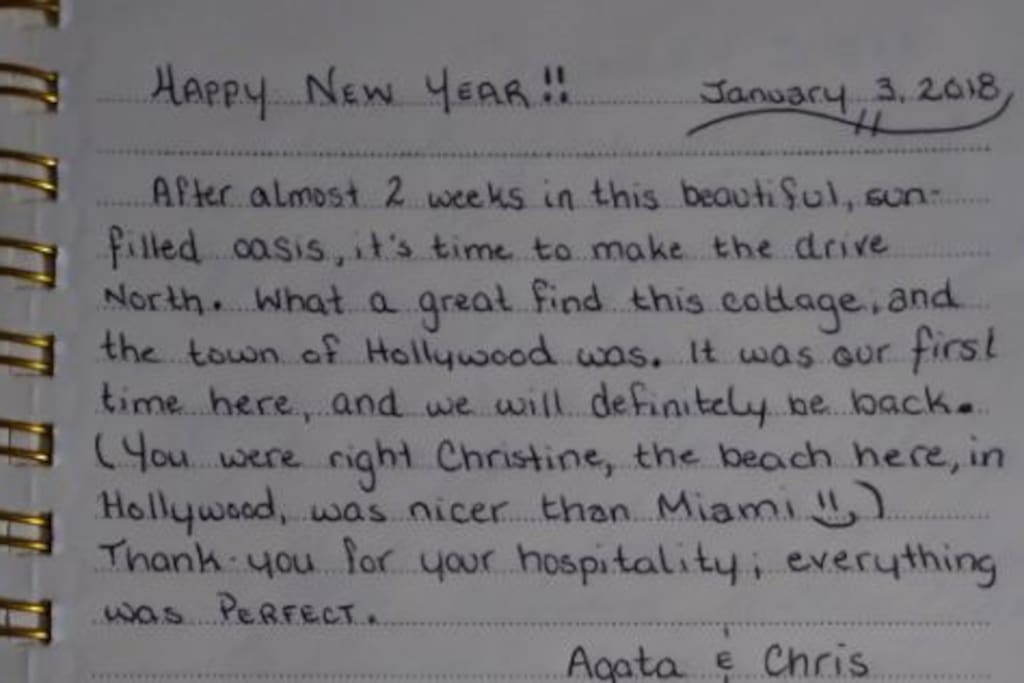 HAPPY NEW YEAR!! January 3, 2018
After almost 2 weeks in this beautiful, sun-
filled oasis, it's time to make the drive
North. What a great find this cottage, and
the town of Hollywood was. It was our first
time here, and we will definitely be back.
(You were right Christine, the beach here, in
Hollywood, was nicer than Miami !! )
Thank-you for your hospitality; everything
was PERFECT.
Agata & Chris